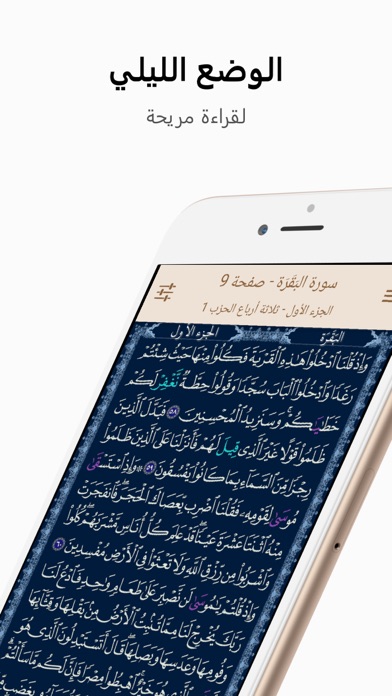 الوضع الليلي
لقراءة مريحة
سورة البَقَرَة - صفحة 9
الجزء الأول - ثلاثة أرباع الحزب 1
البَقَرَة الجزء الأول
وَإِذْ قُلْنَا ٱدْخُلُوا۟ هَٰذِهِ ٱلْقَرْيَةَ فَكُلُوا۟ مِنْهَا حَيْثُ شِئْتُمْ
رَغَدًا وَٱدْخُلُوا۟ ٱلْبَابَ سُجَّدًا وَقُولُوا۟ حِطَّةٌ نَّغْفِرْ لَكُمْ
خَطَٰيَٰكُمْ ۚ وَسَنَزِيدُ ٱلْمُحْسِنِينَ ٥٨ فَبَدَّلَ ٱلَّذِينَ
ظَلَمُوا۟ قَوْلًا غَيْرَ ٱلَّذِى قِيلَ لَهُمْ فَأَنزَلْنَا عَلَى ٱلَّذِينَ ظَلَمُوا۟
رِجْزًا مِّنَ ٱلسَّمَآءِ بِمَا كَانُوا۟ يَفْسُقُونَ ٥٩ وَإِذِ ٱسْتَسْقَىٰ
مُوسَىٰ لِقَوْمِهِۦ فَقُلْنَا ٱضْرِب بِّعَصَاكَ ٱلْحَجَرَ ۖ فَٱنفَجَرَتْ
مِنْهُ ٱثْنَتَا عَشْرَةَ عَيْنًا ۖ قَدْ عَلِمَ كُلُّ أُنَاسٍ مَّشْرَبَهُمْ ۖ كُلُوا۟
وَٱشْرَبُوا۟ مِن رِّزْقِ ٱللَّهِ وَلَا تَعْثَوْا۟ فِى ٱلْأَرْضِ مُفْسِدِينَ ٦٠
وَإِذْ قُلْتُمْ يَٰمُوسَىٰ لَن نَّصْبِرَ عَلَىٰ طَعَامٍ وَٰحِدٍ فَٱدْعُ لَنَا
رَبَّكَ يُخْرِجْ لَنَا مِمَّا تُنۢبِتُ ٱلْأَرْضُ مِنۢ بَقْلِهَا وَقِثَّآئِهَا
وَفُومِهَا وَعَدَسِهَا وَبَصَلِهَا ۖ قَالَ أَتَسْتَبْدِلُونَ ٱلَّذِى هُوَ
هُوَ خَيْرٌ ۚ ٱهْبِطُوا۟ مِصْرًا فَإِنَّ لَكُم مَّا سَأَلْتُمْ